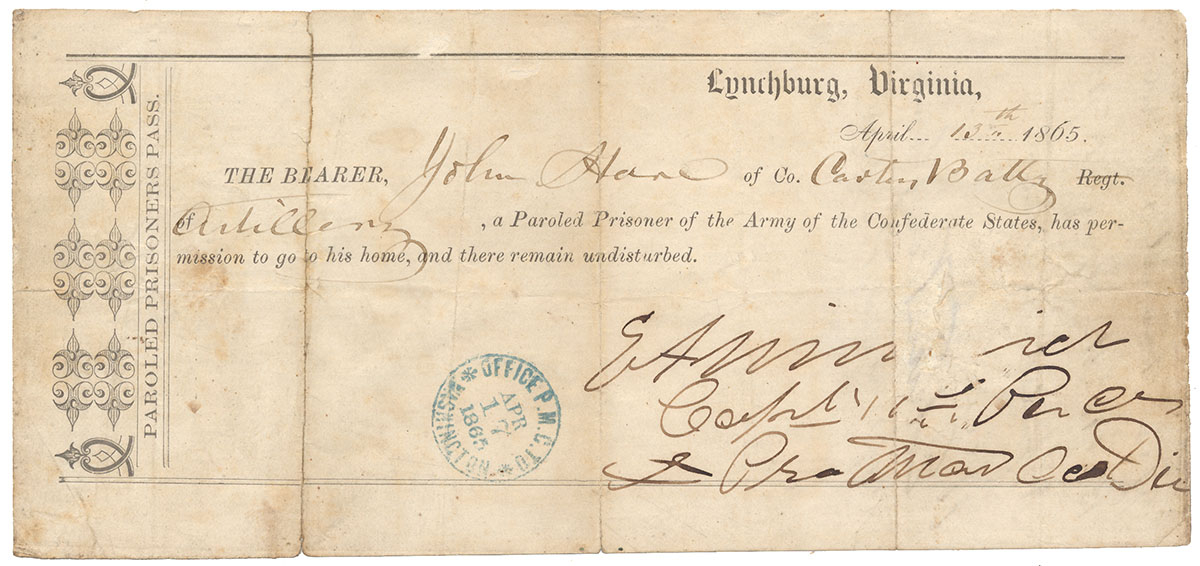 PAROLED PRISONERS PASS.
Lynchburg, Virginia,
April 13th 1865.
THE BEARER, John Hare of Co. Carters Batty Regt.
of Artillery, a Paroled Prisoner of the Army of the Confederate States, has per-
mission to go to his home, and there remain undisturbed.
Capt 11
& Pro Mar
OFFICE P. M. G. TO
WASHINGTON.
APR
17
1865